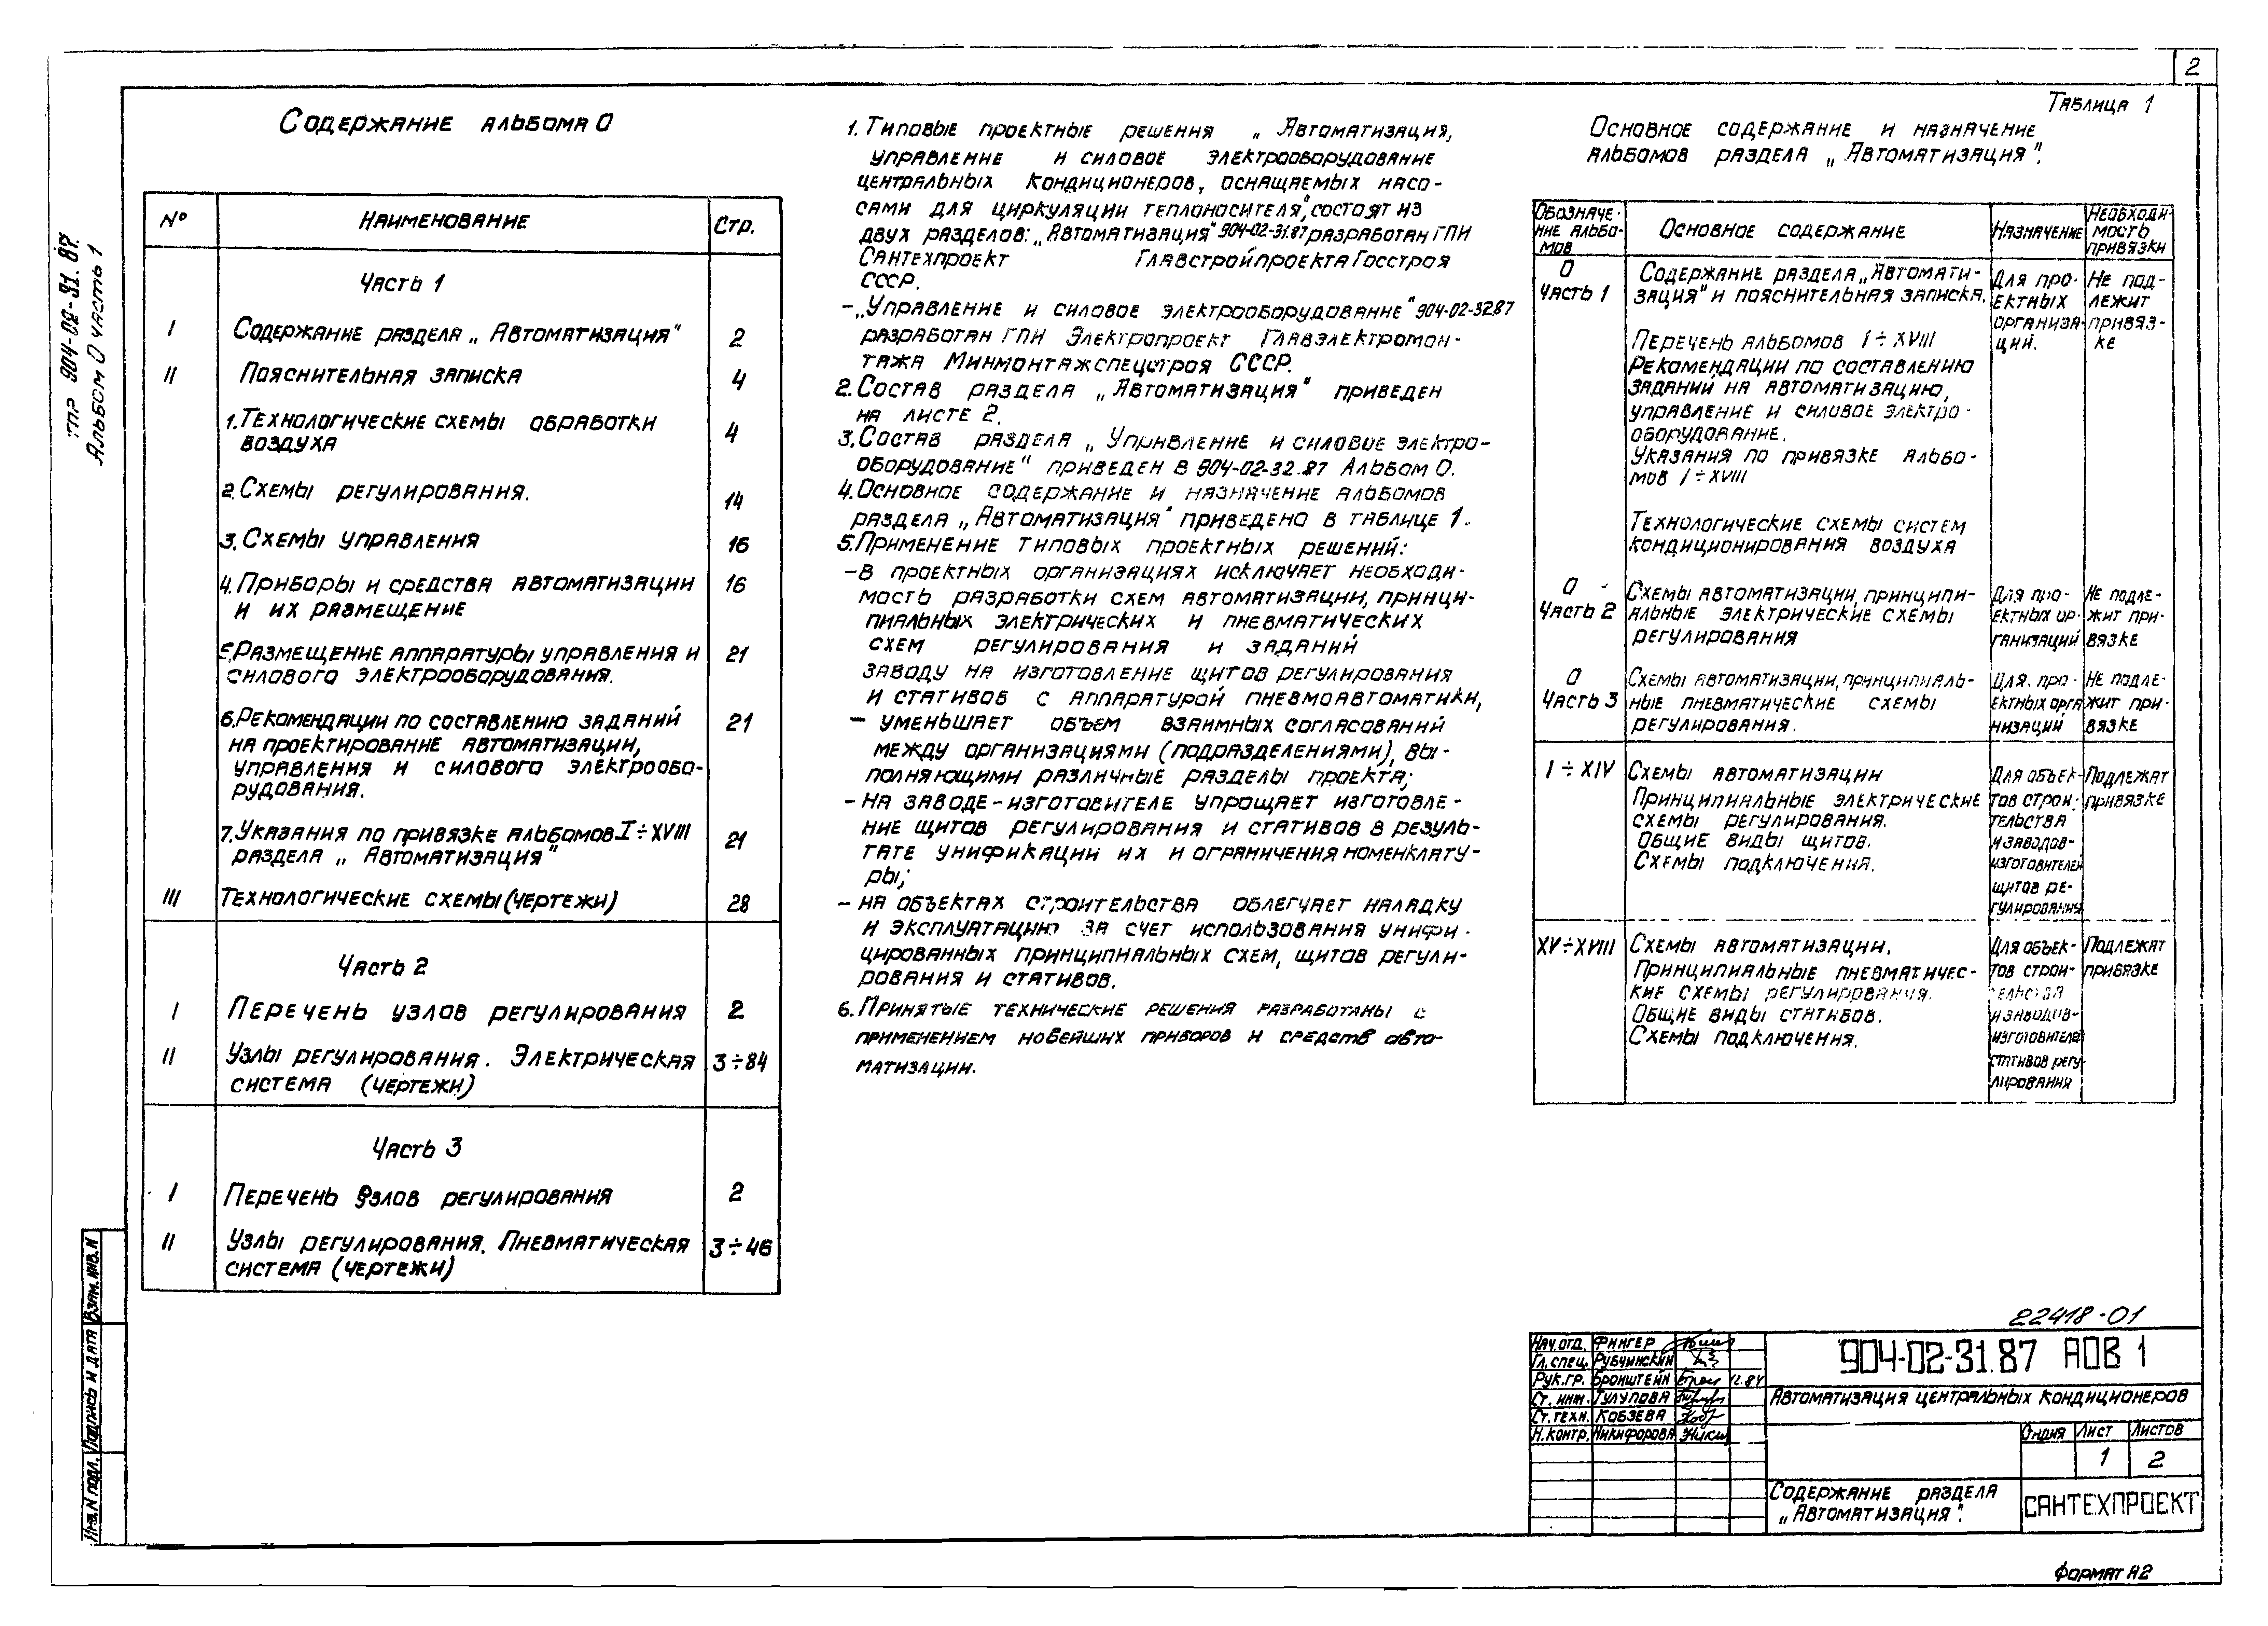 2
ТПР 904-02-31.87.
Альбом 0 часть 1
Содержание альбома 0
№ Наименование Стр.
Часть 1
I Содержание раздела „Автоматизация" 2
II Пояснительная записка 4
1. Технологические схемы обработки 4
воздуха
2. Схемы регулирования. 14
3. Схемы управления 16
4. Приборы и средства автоматизации 16
и их размещение
5. Размещение аппаратуры управления и 21
силового электрооборудования.
6. Рекомендации по составлению заданий 21
на проектирование автоматизации,
управления и силового электрообо-
рудования.
7. Указания по привязке альбомов I÷XVIII 21
раздела „Автоматизация"
III Технологические схемы (чертежи) 28
Часть 2
I Перечень узлов регулирования 2
II Узлы регулирования. Электрическая 3÷84
система (чертежи)
Часть 3
I Перечень узлов регулирования 2
II Узлы регулирования. Пневматическая 3÷46
система (чертежи)
1. Типовые проектные решения „Автоматизация,
управление и силовое электрооборудование
центральных кондиционеров, оснащаемых насо-
сами для циркуляции теплоносителя", состоят из
двух разделов: „Автоматизация" 904-02-31.87 разработан ГПИ
Сантехпроект Главстройпроекта Госстроя
СССР.
- „Управление и силовое электрооборудование" 904-02-32.87
разработан ГПИ Электропроект Главэлектромон-
тажа Минмонтажспецстроя СССР.
2. Состав раздела „Автоматизация" приведен
на листе 2.
3. Состав раздела „Управление и силовое электро-
оборудование" приведен в 904-02-32.87 Альбом 0.
4. Основное содержание и назначение альбомов
раздела „Автоматизация" приведено в таблице 1.
5. Применение типовых проектных решений:
- в проектных организациях исключает необходи-
мость разработки схем автоматизации, принци-
пиальных электрических и пневматических
схем регулирования и заданий
заводу на изготовление щитов регулирования
и стативов с аппаратурой пневмоавтоматики,
- уменьшает объем взаимных согласований
между организациями (подразделениями), вы-
полняющими различные разделы проекта;
- на заводе-изготовителе упрощает изготовле-
ние щитов регулирования и стативов в резуль-
тате унификации их и ограничения номенклату-
ры;
- на объектах строительства облегчает наладку
и эксплуатацию за счет использования унифи-
цированных принципиальных схем, щитов регули-
рования и стативов.
6. Принятые технические решения разработаны с
применением новейших приборов и средств авто-
матизации.
Таблица 1
Основное содержание и назначение
альбомов раздела „Автоматизация".
Обозначе-
ние альбо-
мов
Основное содержание
Назначение
Необходи-
мость
привязки
0
Часть 1
Содержание раздела „Автомати-
зация" и пояснительная записка.
Перечень альбомов I÷XVIII
Рекомендации по составлению
заданий на автоматизацию,
управление и силовое электро-
оборудование.
Указания по привязке альбо-
мов I÷XVIII
Технологические схемы систем
кондиционирования воздуха
Для про-
ектных
организа-
ций.
Не под-
лежит
привяз-
ке
0
Часть 2
Схемы автоматизации, принципи-
альные электрические схемы
регулирования
Для про-
ектных ор-
ганизаций
Не подле-
жит при-
вязке
0
Часть 3
Схемы автоматизации, принципиаль-
ные пневматические схемы
регулирования.
Для про-
ектных орга
низаций
Не подле-
жит при-
вязке
I÷XIV
Схемы автоматизации
Принципиальные электрические
схемы регулирования.
Общие виды щитов.
Схемы подключения.
Для объек-
тов строи-
тельства
и заводов-
изготовителей
щитов ре-
гулирования
Подлежат
привязке
XV÷XVIII
Схемы автоматизации.
Принципиальные пневматичес-
кие схемы регулирования.
Общие виды стативов.
Схемы подключения.
Для объек-
тов строи-
тельства
и заводов-
изготовителей
стативов регу-
лирования
Подлежат
привязке
22418-01
Нач.отд. Фингер
Гл.спец. Рубчинский
Рук.гр. Бронштейн 12.87
Ст. инж. Тулупова
Ст.техн. Кобзева
Н.контр. Никифорова
904-02-31.87 АОВ 1
Автоматизация центральных кондиционеров
Стадия Лист Листов
1 2
Содержание раздела
„Автоматизация".
САНТЕХПРОЕКТ
Взам. инв. N
Подпись и дата
Инв. N подл.
Формат А2